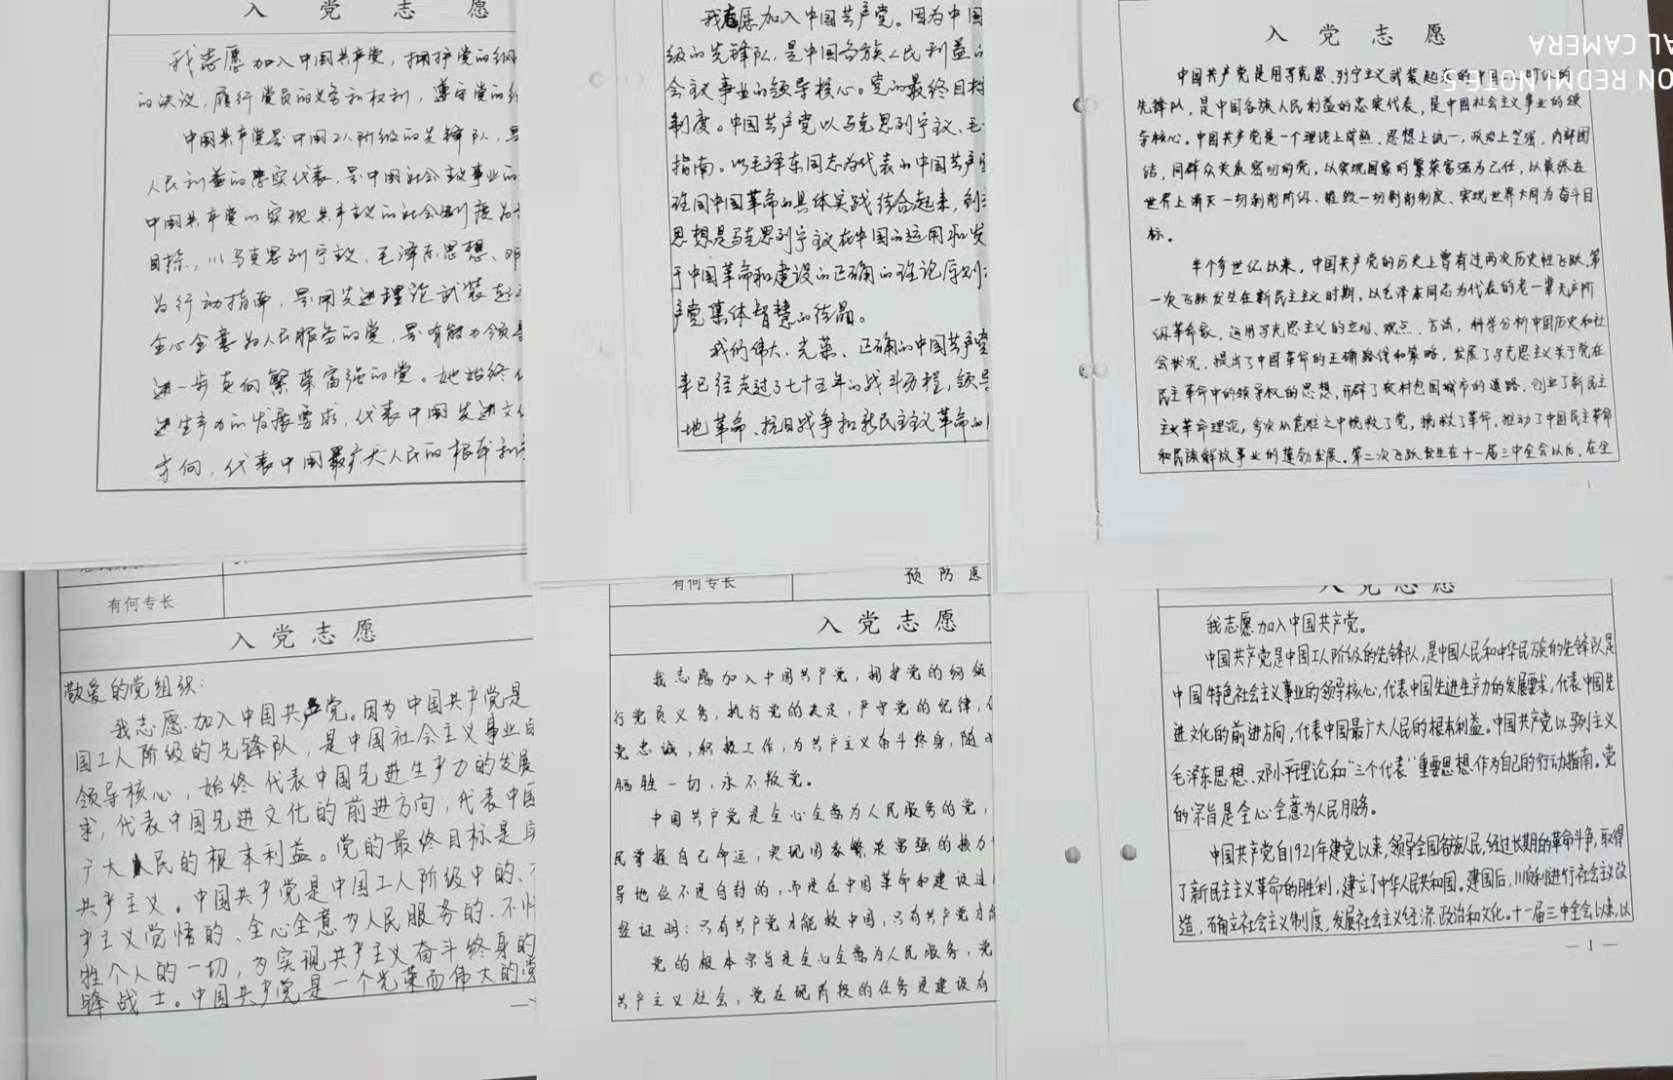 入党志愿
我志愿加入中国共产党，拥护党的纲
的决议，履行党员的义务和权利，遵守党的纪
中国共产党是中国工人阶级的先锋队，是
人民利益的忠实代表，是中国社会主义事业的
中国共产党以实现共产主义的社会制度为
目标，以马克思列宁主义、毛泽东思想、邓
为行动指南，是用先进理论武装起
全心全意为人民服务的党，是有能力领导
进一步走向繁荣富强的党。她始终代
进生产力的发展要求，代表中国先进文化
方向，代表中国最广大人民的根本利
我志愿加入中国共产党。因为中国
级的先锋队，是中国各族人民利益的
会主义事业的领导核心。党的最终目标
制度。中国共产党以马克思列宁主义、毛
指南。以毛泽东同志为代表的中国共产
理同中国革命的具体实践结合起来，创
思想是马克思列宁主义在中国的运用和发
于中国革命和建设的正确的理论原则
产党集体智慧的结晶。
我们伟大、光荣、正确的中国共产党
来已经走过了七十五年的战斗历程，领导
地革命、抗日战争和新民主主义革命的
入党志愿
ON REDMI NOTE 5
AL CAMERA
中国共产党是用马克思、列宁主义武装起的中国工人阶级的
先锋队，是中国各族人民利益的忠实代表，是中国社会主义事业的领
导核心。中国共产党是一个理论上成熟、思想上统一，政治上坚强，内部团
结，同群众关系密切的党，以实现国家的繁荣富强为己任，以最终在
世界上消灭一切剥削阶级、摧毁一切剥削制度、实现世界大同为奋斗目
标。
半个多世纪以来，中国共产党的历史上曾有过两次历史性飞跃。第
一次飞跃发生在新民主主义时期，以毛泽东同志为代表的老一辈无产阶
级革命家，运用马克思主义的立场、观点、方法，科学分析中国历史和社
会状况，提出了中国革命的正确路线和策略，发展了马克思主义关于党在
民主革命中的领导权的思想，开辟了农村包围城市的道路，创立了新民主
主义革命理论，多次从危难之中挽救了党，挽救了革命，推动了中国民主革命
和民族解放事业的蓬勃发展。第二次飞跃发生在十一届三中全会以后，在全
1
有何专长
入党志愿
敬爱的党组织：
我志愿加入中国共产党。因为中国共产党是
国工人阶级的先锋队，是中国社会主义事业的
领导核心，始终代表中国先进生产力的发展
求，代表中国先进文化的前进方向，代表中国
广大人民的根本利益。党的最终目标是实
共产主义。中国共产党是中国工人阶级中的、
产主义觉悟的、全心全意为人民服务的、不惜
牲个人的一切，为实现共产主义奋斗终身的
锋战士。中国共产党是一个光荣而伟大的党
有何专长
预防医
入党志愿
我志愿加入中国共产党，拥护党的纲领
行党员义务，执行党的决定，严守党的纪律，
党忠诚，积极工作，为共产主义奋斗终身，随
牺牲一切，永不叛党。
中国共产党是全心全意为人民服务的党，
民掌握自己命运，实现国家繁荣富强的核力
导地位不是自封的，而是在中国革命和建设过
经证明：只有共产党才能救中国，只有共产党才能
党的根本宗旨是全心全意为人民服务，党
共产主义社会，党在现阶段的任务是建设有
入党志愿
我志愿加入中国共产党。
中国共产党是中国工人阶级的先锋队，是中国人民和中华民族的先锋队，是
中国特色社会主义事业的领导核心，代表中国先进生产力的发展要求，代表中国先
进文化的前进方向，代表中国最广大人民的根本利益。中国共产党以马列主义
毛泽东思想、邓小平理论和“三个代表”重要思想作为自己的行动指南。党
的宗旨是全心全意为人民服务。
中国共产党自1921年建党以来，领导全国各族人民，经过长期的革命斗争，取得
了新民主主义革命的胜利，建立了中华人民共和国。建国后，顺利进行社会主义改
造，确立社会主义制度，发展社会主义经济、政治和文化。十一届三中全会以来，以
— 1 —